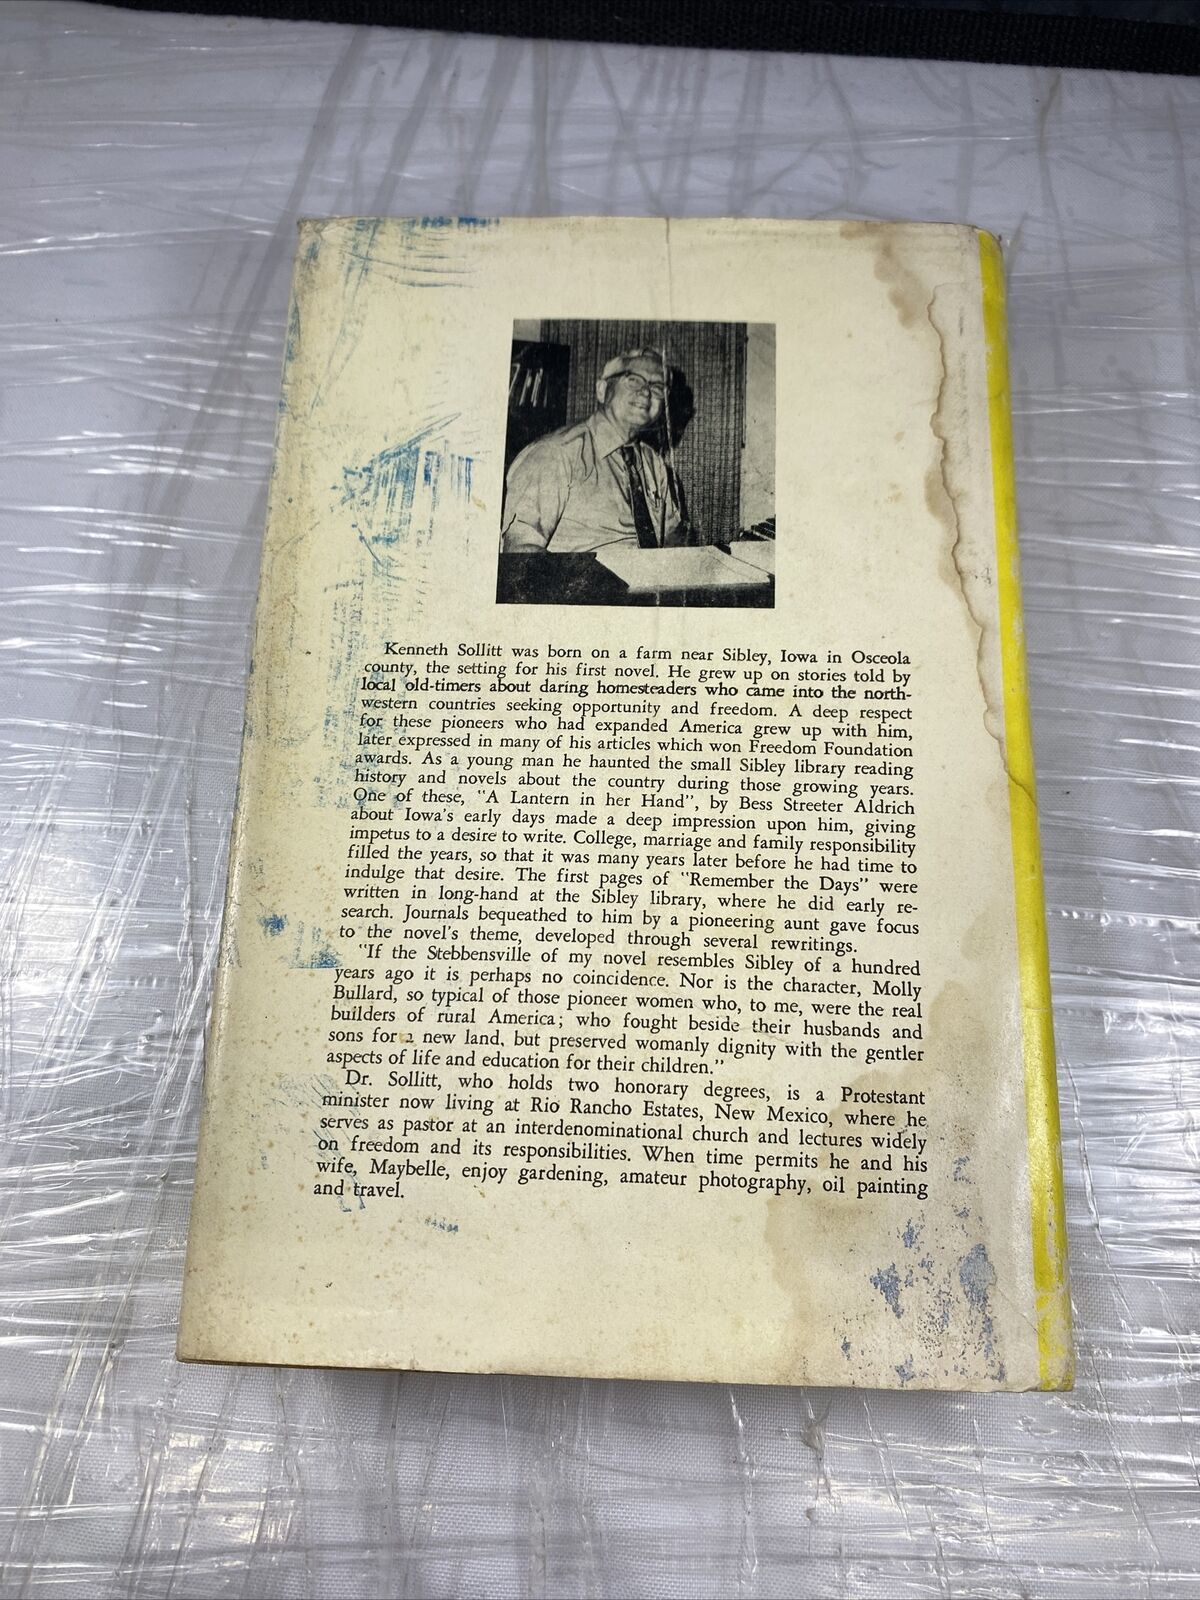 Kenneth Sollitt was born on a farm near Sibley, Iowa in Osceola
county, the setting for his first novel. He grew up on stories told by
local old-timers about daring homesteaders who came into the north-
western countries seeking opportunity and freedom. A deep respect
for these pioneers who had expanded America grew up with him,
later expressed in many of his articles which won Freedom Foundation
awards. As a young man he haunted the small Sibley library reading
history and novels about the country during those growing years.
One of these, "A Lantern in her Hand", by Bess Streeter Aldrich
about Iowa's early days made a deep impression upon him, giving
impetus to a desire to write. College, marriage and family responsibility
filled the years, so that it was many years later before he had time to
indulge that desire. The first pages of "Remember the Days" were
written in long-hand at the Sibley library, where he did early re-
search. Journals bequeathed to him by a pioneering aunt gave focus
to the novel's theme, developed through several rewritings.
"If the Stebbensville of my novel resembles Sibley of a hundred
years ago it is perhaps no coincidence. Nor is the character, Molly
Bullard, so typical of those pioneer women who, to me, were the real
builders of rural America; who fought beside their husbands and
sons for a new land, but preserved womanly dignity with the gentler
aspects of life and education for their children."
Dr. Sollitt, who holds two honorary degrees, is a Protestant
minister now living at Rio Rancho Estates, New Mexico, where he
serves as pastor at an interdenominational church and lectures widely
on freedom and its responsibilities. When time permits he and his
wife, Maybelle, enjoy gardening, amateur photography, oil painting
and travel.